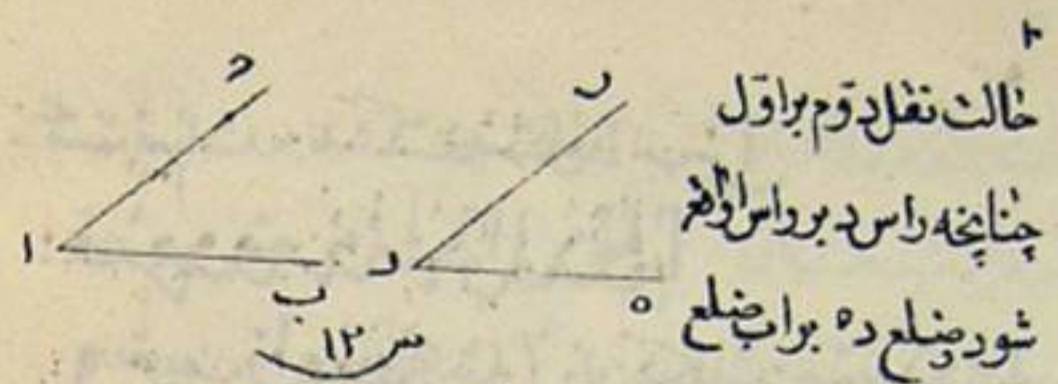 ۲
حالت نقل دوّم بر اوّل
چنانچه راس د بر راس ا واقع
شود و ضلع د ه بر ا ب ضلع
ا
ب
د
ه
ر
س ۱۳